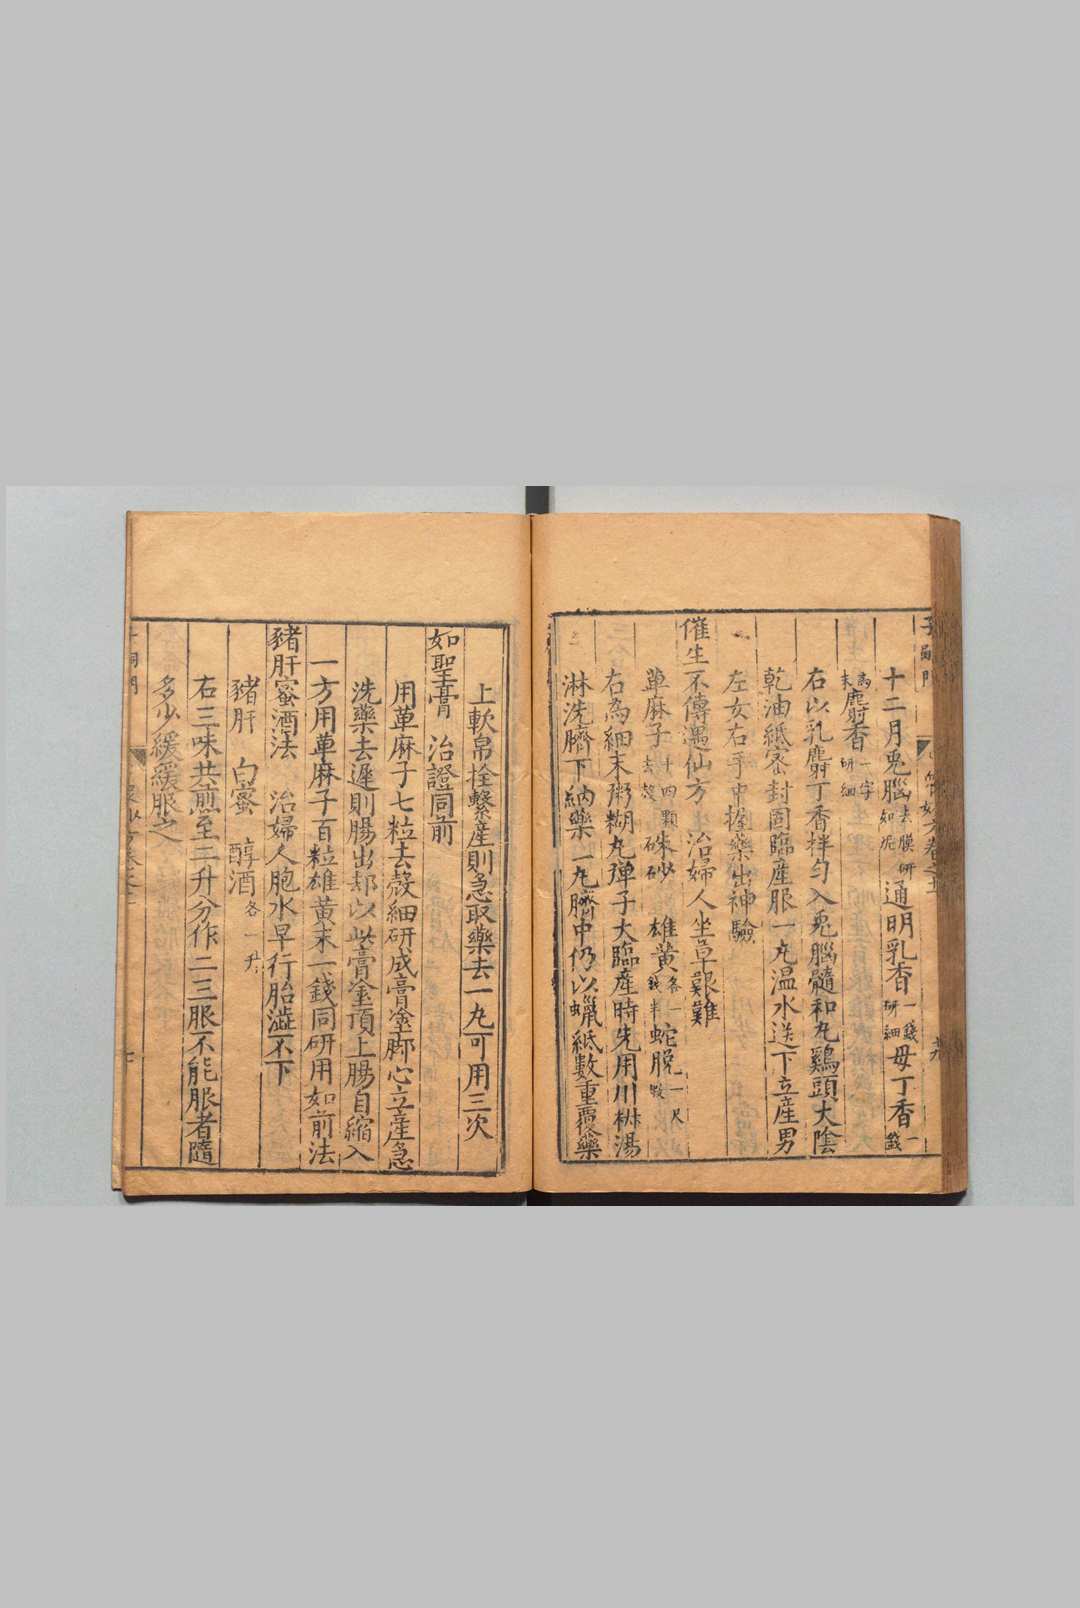 十二月兎腦去膜研如泥 通明乳香一錢研細 母丁香一錢
為末 麝香一字研細
右以乳麝丁香拌勻入兎腦髓和丸鷄頭大陰
乾油紙密封固臨産服一丸温水送下立産男
左女右手中握藥出神驗
催生不傳遇仙方 治婦人坐草艱難
草麻子十四顆去殼 硃砂 雄黃各一錢半 蛇脫一尺
右為細末粥糊丸彈子大臨産時先用川椒湯
淋洗臍下納藥一丸臍中仍以蠟紙數重覆藥
上軟帛拴繫産則急取藥去一丸可用三次
如聖膏 治證同前
用草麻子七粒去殼細研成膏塗脚心立産急
洗藥去遲則腸出却以此膏塗頂上腸自縮入
一方用草麻子百粒雄黃末一錢同研用如前法
豬肝蜜酒法 治婦人胞水早行胎澁不下
豬肝 白蜜 醇酒各一升
右三味共煎至二升分作二三服不能服者隨
多少緩緩服之